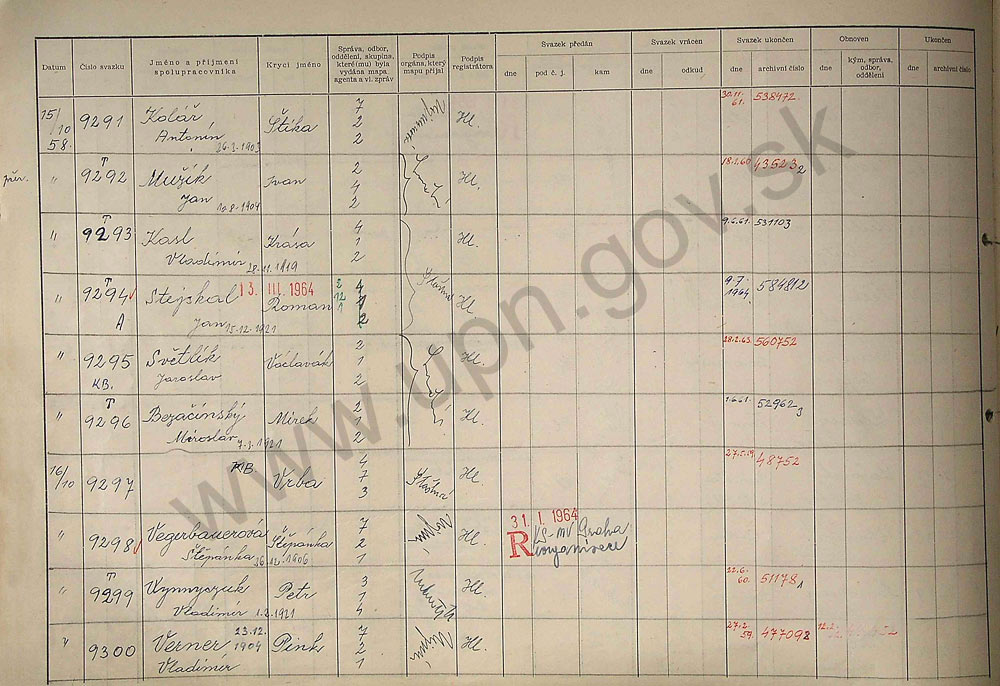 Datum
Číslo svazku
Jméno a příjmení
spolupracovníka
Krycí jméno
Správa, odbor,
oddělení, skupina,
které(mu) byla
vydána mapa
agenta a vl. zpráv
Podpis
orgána, který
mapu přijal
Podpis
registrátora
Svazek předán
dne
pod č. j.
kam
Svazek vrácen
dne
odkud
Svazek ukončen
dne
archivní číslo
Obnoven
dne
kým, správa,
odbor,
oddělení
Ukončen
dne
archivní číslo
15/
10
58.
9291
Kolář
Antonín
26.3.1903
Štika
7
2
2
Hl.
30.11.
61.
538472
"
T
9292
Mužík
Jan
10.8.1904
Ivan
2
4
2
Hl.
18.1.60
43523 2
"
T
9293
Kasl
Vladimír
28.11.1919
Krása
4
1
2
Hl.
9.6.61.
531103
"
T
9294
A
Stejskal
Jan 15.12.1921
13. III. 1964
Roman
2
12
1
4
1
2
Šťastná
Hl.
9.7.
1964
584812
"
9295
KB.
Světlík
Jaroslav
Václavák
2
1
2
Hl.
28.2.63.
560752
"
T
9296
Bezačinský
Miroslav 7.3.1921
Mirek
2
1
2
Hl.
1.6.61.
52962 3
16/
10
9297
Vrba
4
7
3
Šťastná
Hl.
48752
"
9298
Vegerbauerová
Štěpánka
26.12.1906
Štěpánka
7
2
1
Hl.
31. I. 1964
R
KS-MV Praha
"
T
9299
Vladimír 1.3.1921
Petr
3
1
4
Hl.
22.6.
60.
51178 1
"
9300
Verner
23.12.
1904
Vladimír
Pink
7
2
1
Hl.
27.2.
59.
477092
www.upn.gov.sk